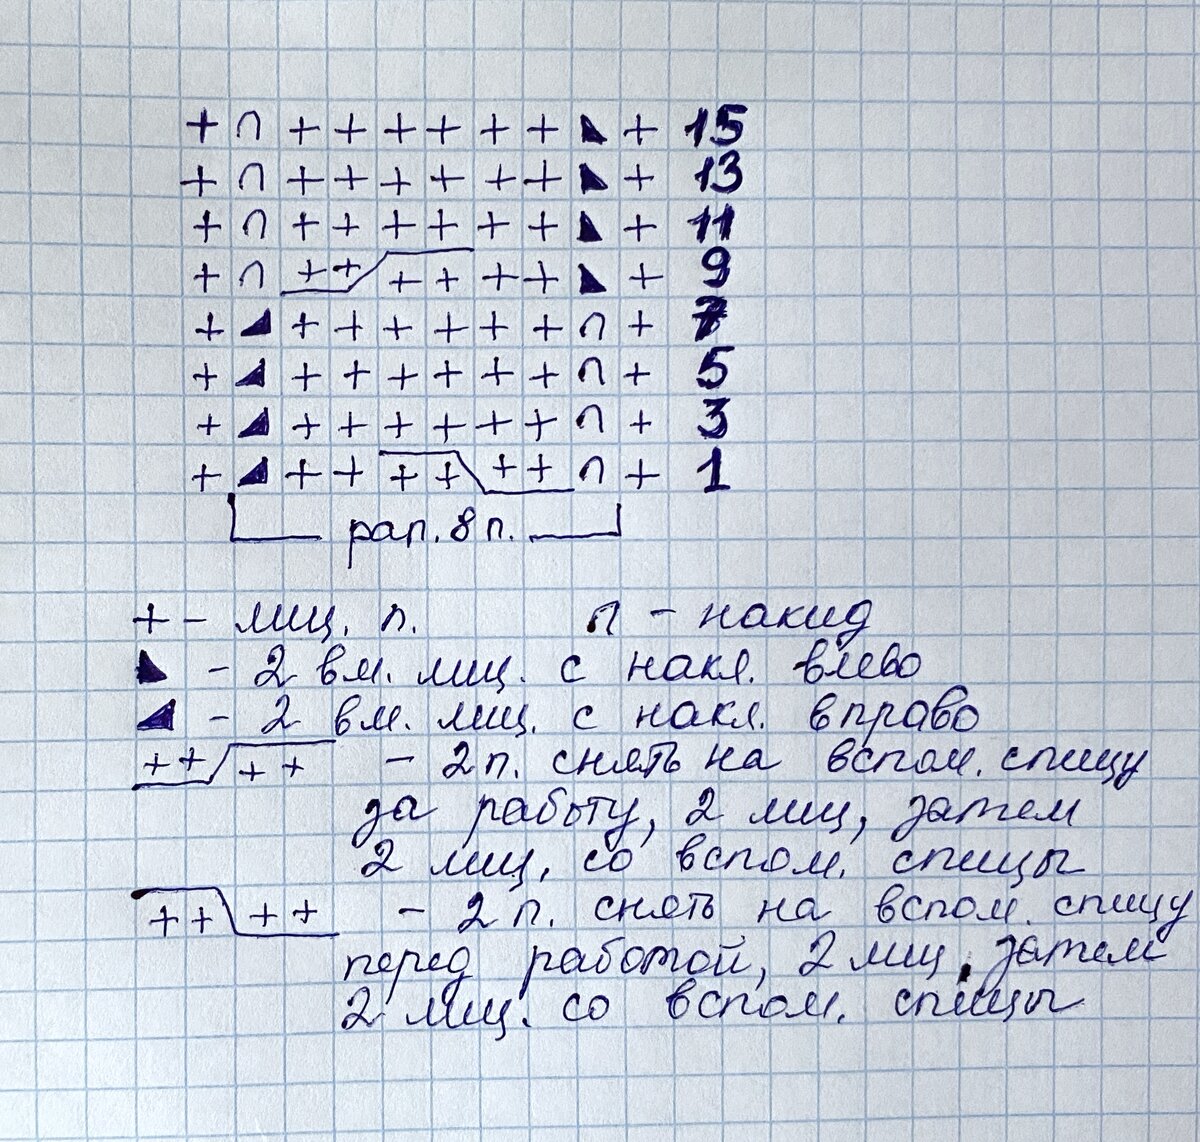 + ∩ + + + + + + ◣ + 15
+ ∩ + + + + + + ◣ + 13
+ ∩ + + + + + + ◣ + 11
+ ∩ + + + + + + ◣ + 9
+ ◢ + + + + + + ∩ + 7
+ ◢ + + + + + + ∩ + 5
+ ◢ + + + + + + ∩ + 3
+ ◢ + + + + + + ∩ + 1
рап. 8 п.
+ - лиц. п. ∩ - накид
◣ - 2 вм. лиц. с накл. влево
◢ - 2 вм. лиц. с накл. вправо
++/++ - 2 п. снять на вспом. спицу
за работу, 2 лиц, затем
2 лиц. со вспом. спицы
++\++ - 2 п. снять на вспом. спицу
перед работой, 2 лиц, затем
2 лиц. со вспом. спицы